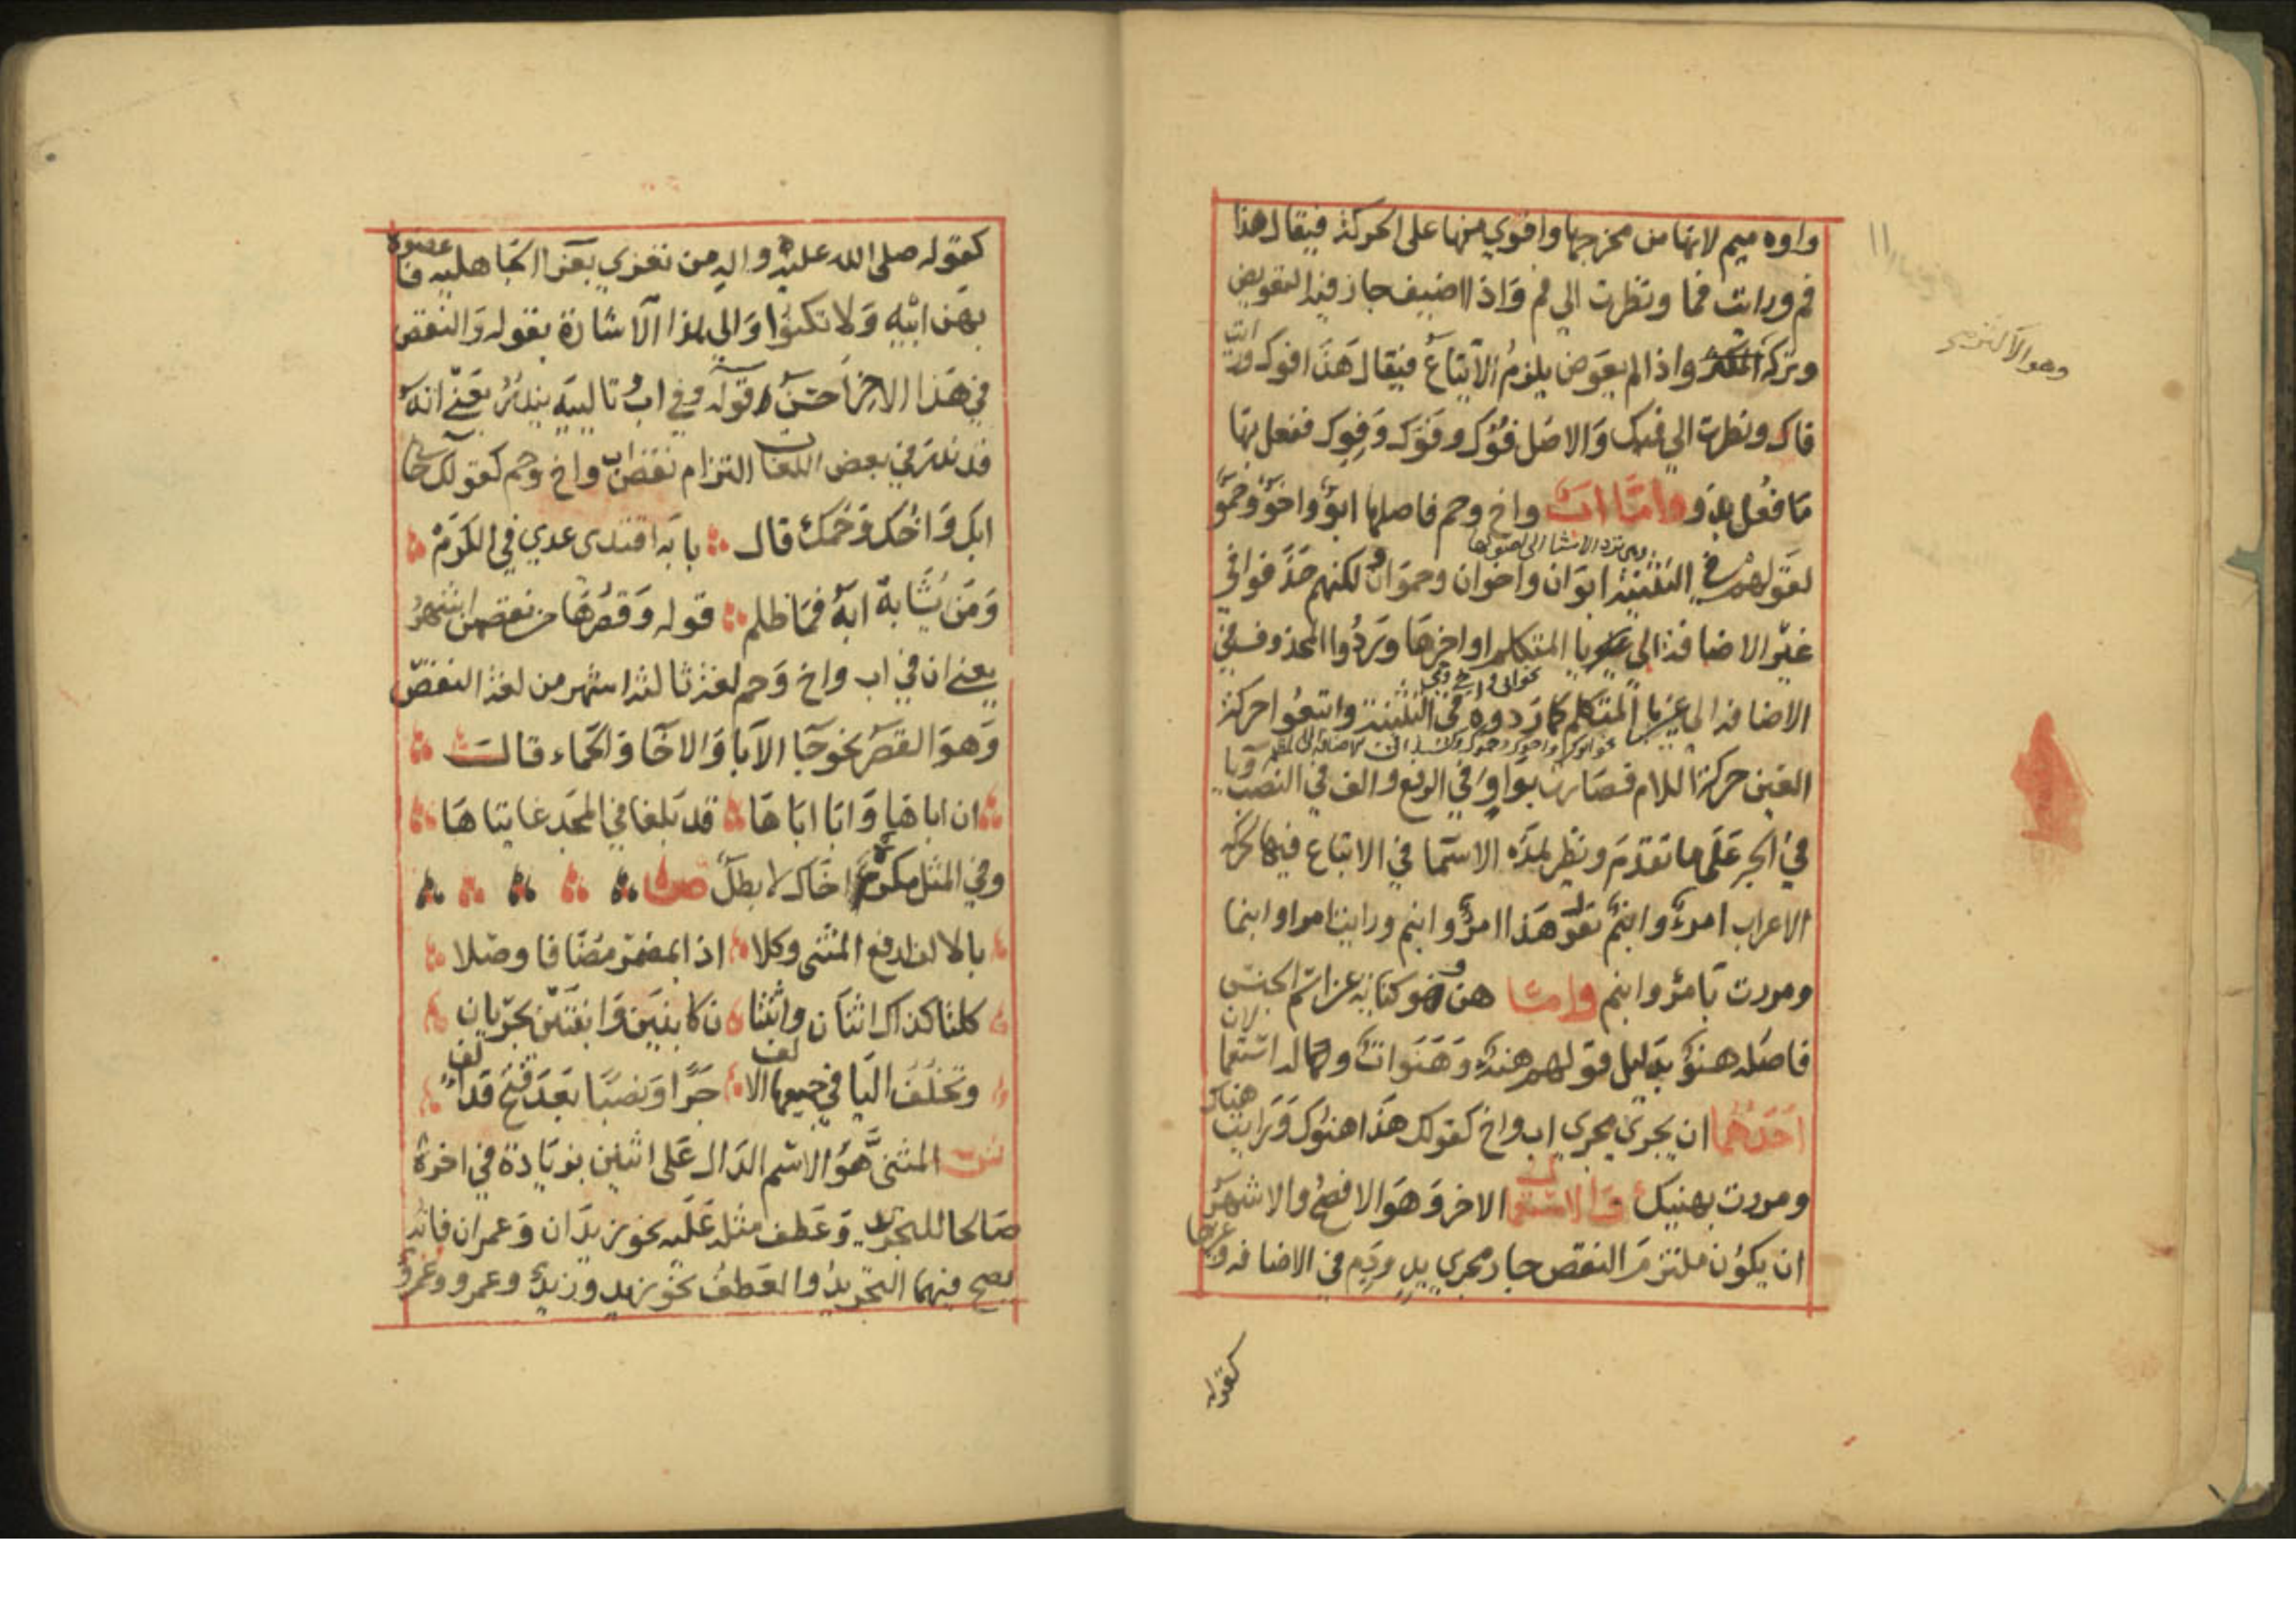 واوه ميم لانها من مخرجها واقوي منها على الحركة فيقال هذا
فم ورايت فما ونظرت الي فم وَاذا اضيف جاز فيه التعويض
وتركه واذا لم يعوض يلزمُ الاتباعُ فيقال هَذا فوك ورايت
فاك ونظرت الي فيك وَالاصل فُوُك وفَوَك وَفِوِك ففعل بها
مَا فعُل بذو وامّا ابٌ واخ وحم فاصلها ابَوٌ واخَوٌ وحَمَوٌ
لقَولهم في التثنية ابوَان واخوان وحموَان لكنهم حَذفوا في
غَير الاضافة الي يا المتكلم اواخرهَا وَرَدُّوا المحذوف في
الاضافه الى غير يا المتكلم كما رَدوه في التثنية واتبعُوا حركة
العَين حركة اللام فصَارت بواو في الرفع والف في النصب ويا
في الجر عَلى ما تقدّم ونظير هذه الاسمَا في الاتباع فيها لحركه
الاعراب امرءٌ وابنمٌ تقول هَذا امرؤٌ وابنم ورايت امرا وابنما
ومررت بَامرئ وابنم وامّا هن فهو كناية عن اسم الجنس
فاصله هنَوٌ بدَليل قولهم هنة وَهَنَوات وله استعما لان
اَحَدُهُما ان يجري مجري اب واخ كقولك هَذا هنوُك وَرَايت هناك
ومررت بهنيك والاستعمال الاخر وَهوَ الافصح والاشهَر
ان يكوُن ملتزمَ النقص جار مجري يد ودَم في الاضافه وغيرها
كقوله
وهو الاكثر
كقوله صلى الله عليه واله من تعزي بعَزا الجاهليه فاعضوه
بهَن ابيه وَلا تكنوُا وَالي هذا الاشارة بقوله وَالنقص
في هَذا الاخر احسَن قوله وفي ابٌ تالييَه يندرُ يعَني انه
قد ندرَ في بعض اللغات التزام نقص اب واخ وحم كقولك جا
ابك وَاخُك وَحَمك قال بابه اقتدى عدي في الكرَمْ
وَمَن يُشَابه ابَه فمَا ظلم قوله وَقصرُهَا من نقصهن اشهرُ
يعني ان في اب واخ وَحم لغة ثالثة اشهر من لغة النقص
وَهوَ القصر نحو جَا الابَا وَالاخَا وَالحماء قالت
ان اباهَا وَابَا ابَاهَا قد بَلغا في المجَد غايتاهَا
وفي المثل مكره اخَاك لا بطل ص
بالالف ارفع المثنى وكلا اذا بمضمَر مُضَافا وصّلا
كلتا كذاك اثنَان واثنتان كابنَين وَابنتَين يجرّيان
وتخلُف اليَا في جميعها الالف جَرًّا وَنصبًا بعَدَ فتح قَد الف
ش المثنى هوَ الاسم الدَال عَلى اثنين بزيَادة في اخره
صَالحا للتجريد وَعَطف مثله عَليَه نحو زيدَان وَعمرَان فانه
يصح فيهما التجريدُ والعَطفُ نحو زيد وزيدٌ وعمرو وعَمروٌ